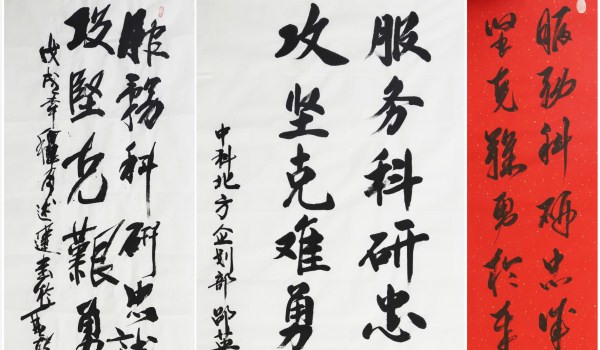 服務科研忠誠
攻堅克艱勇
戊戌年
服务科研忠
攻坚克难勇
中科北方企划部 邵英
服務科研忠诚
坚克難勇於